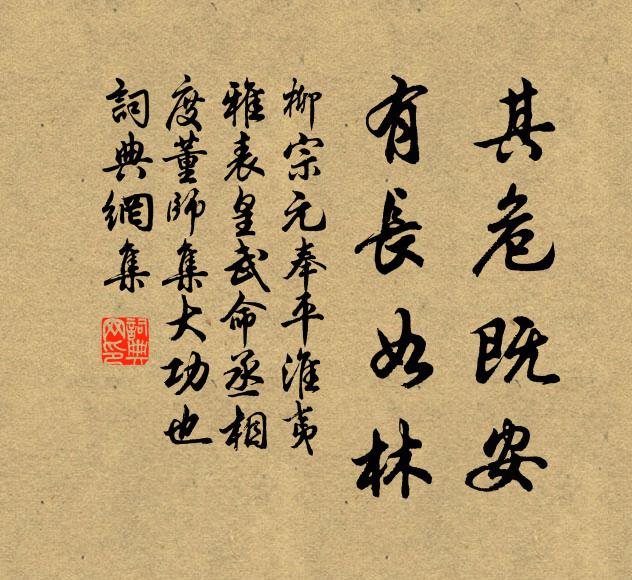 其危既安
有長如林
柳宗元奉平淮夷
雅表皇武命丞相
度董師集大功也
詞典網集
詞典網印